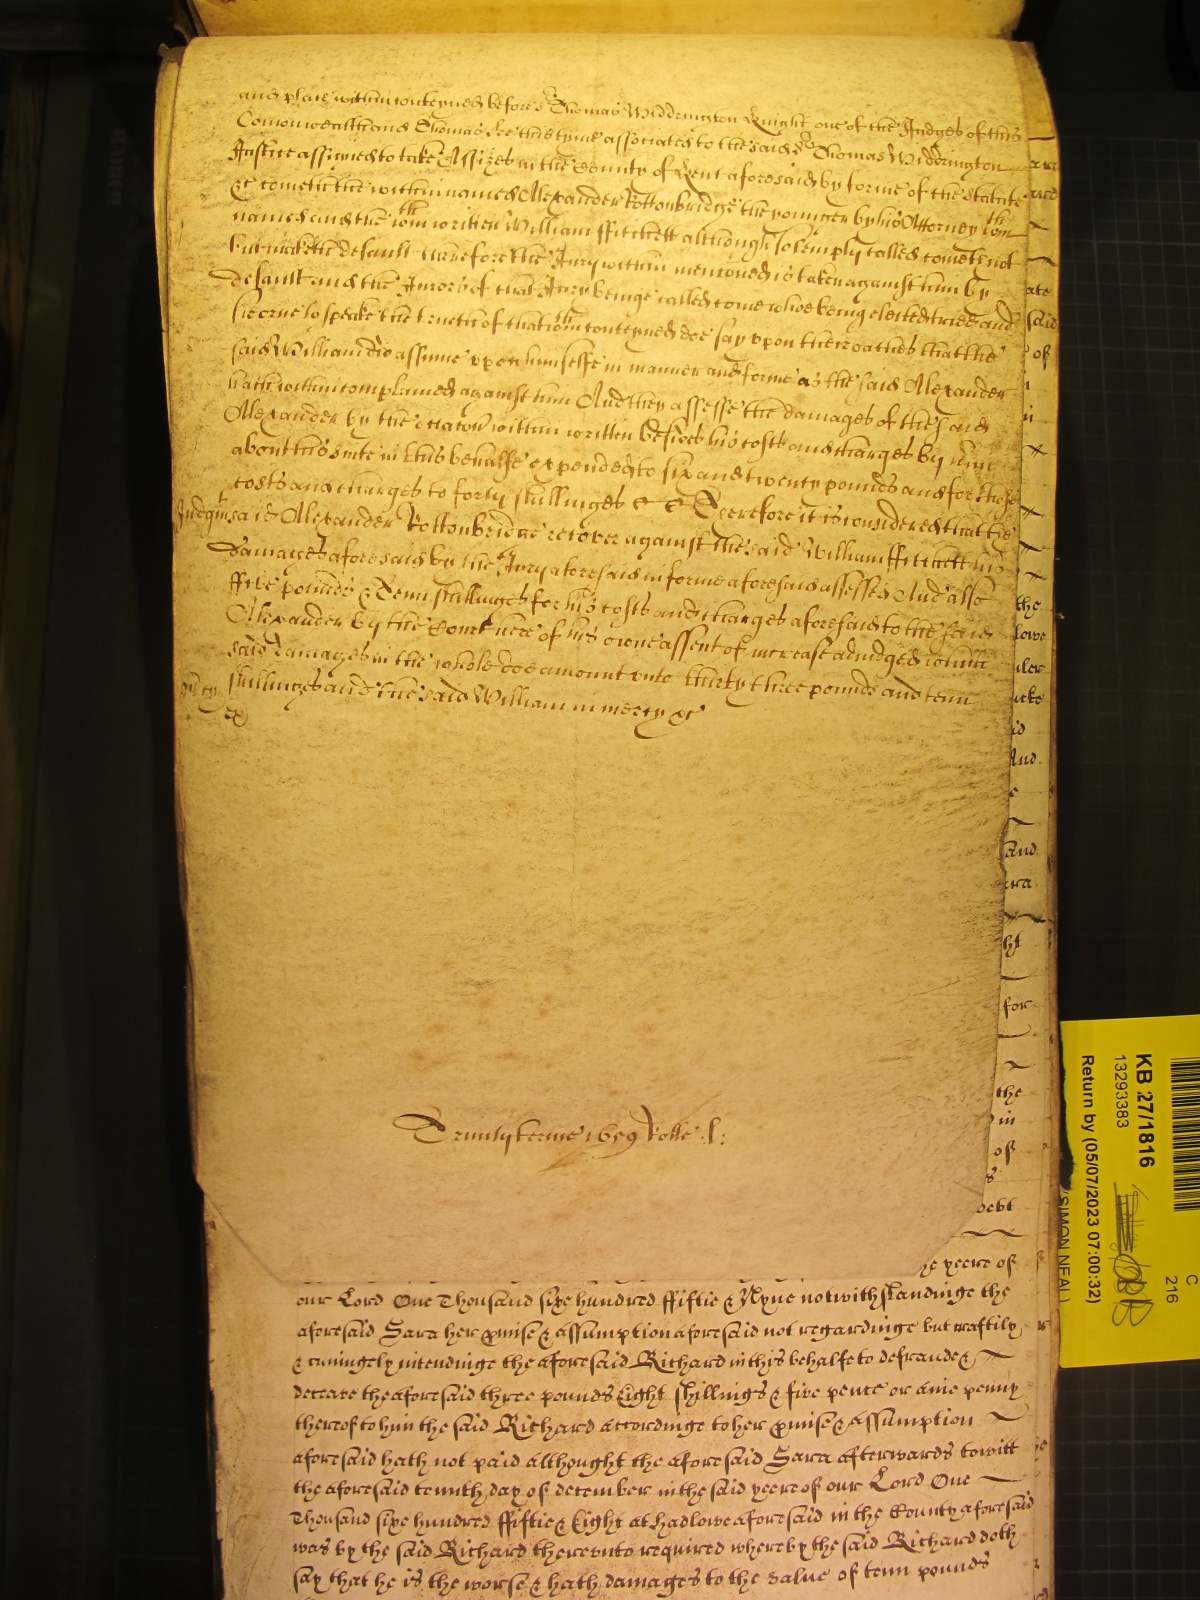 and place within conteyned before Sr Thomas Widdrington Knight one of the Judges of this
Comonwealth and Thomas Lee this tyme associated to the said Sr Thomas Widdrington
Justice assigned to take Assizes in the County of Kent aforesaid by forme of the statute
&c cometh the within named Alexander Rottonbridge the younger by his Attorney within
named and the within written William Ffitchett although solemply called cometh not
but maketh default therefore the Jury within mentioned is taken against him by
default and the Jurors of that Jury beinge called come whoe being elected tried and
sworne to speake the trueth of that within conteyned doe say upon there oathes that the
said William did assume upon himselfe in manner and forme as the said Alexander
hath within complained against him And they assesse the damages of the said
Alexander by the occacon within written besides his costs and charges by him
about his suite in this behalfe expended to six and twenty pounds and for those
costs and charges to forty shillinges &c &c Therefore it is considered that the
Judgmt said Alexander Rottonbridge recover against the said William Ffitchett his
damages aforesaid by the Jury aforesaid in forme aforesaid assessed And alsoe
ffive pounds & Tenn shillinges for his costs and charges aforesaid to the said
Alexander by the Court here of his owne assent of increase adiudged which
said damages in the whole doe amount unto thirty three pounds and tenn
mercy shillinges and the said William in mercy &c
Trinity terme 1659 Rolle
yeere of
our Lord One Thousand sixe hundred ffiftie & Nyne notwithstandinge the
aforesaid Sara her pmise & assumption aforesaid not regardinge but craftily
& cuningely intendinge the aforesaid Richard in this behalfe to defraude &
deceave the aforesaid three pounds Eight shillings & five pence or anie penny
thereof to him the said Richard accordinge to her pmise & assumption
aforesaid hath not paid althought the aforesaid Sara afterwards towitt
the aforesaid tennth day of december in the said yeere of our Lord One
Thousand sixe hundred ffiftie & Eight at Hadlowe aforesaid in the County aforesaid
was by the said Richard therevnto required whereby the said Richard doth
say that he is the worse & hath damages to the value of tenn pounds
said
of
the
lowe
And
and
for
the
in
of
debt
KB 27/1816
13293383
Return by (05/07/2023 07:00:32)
SIMON NEAL)
C
216